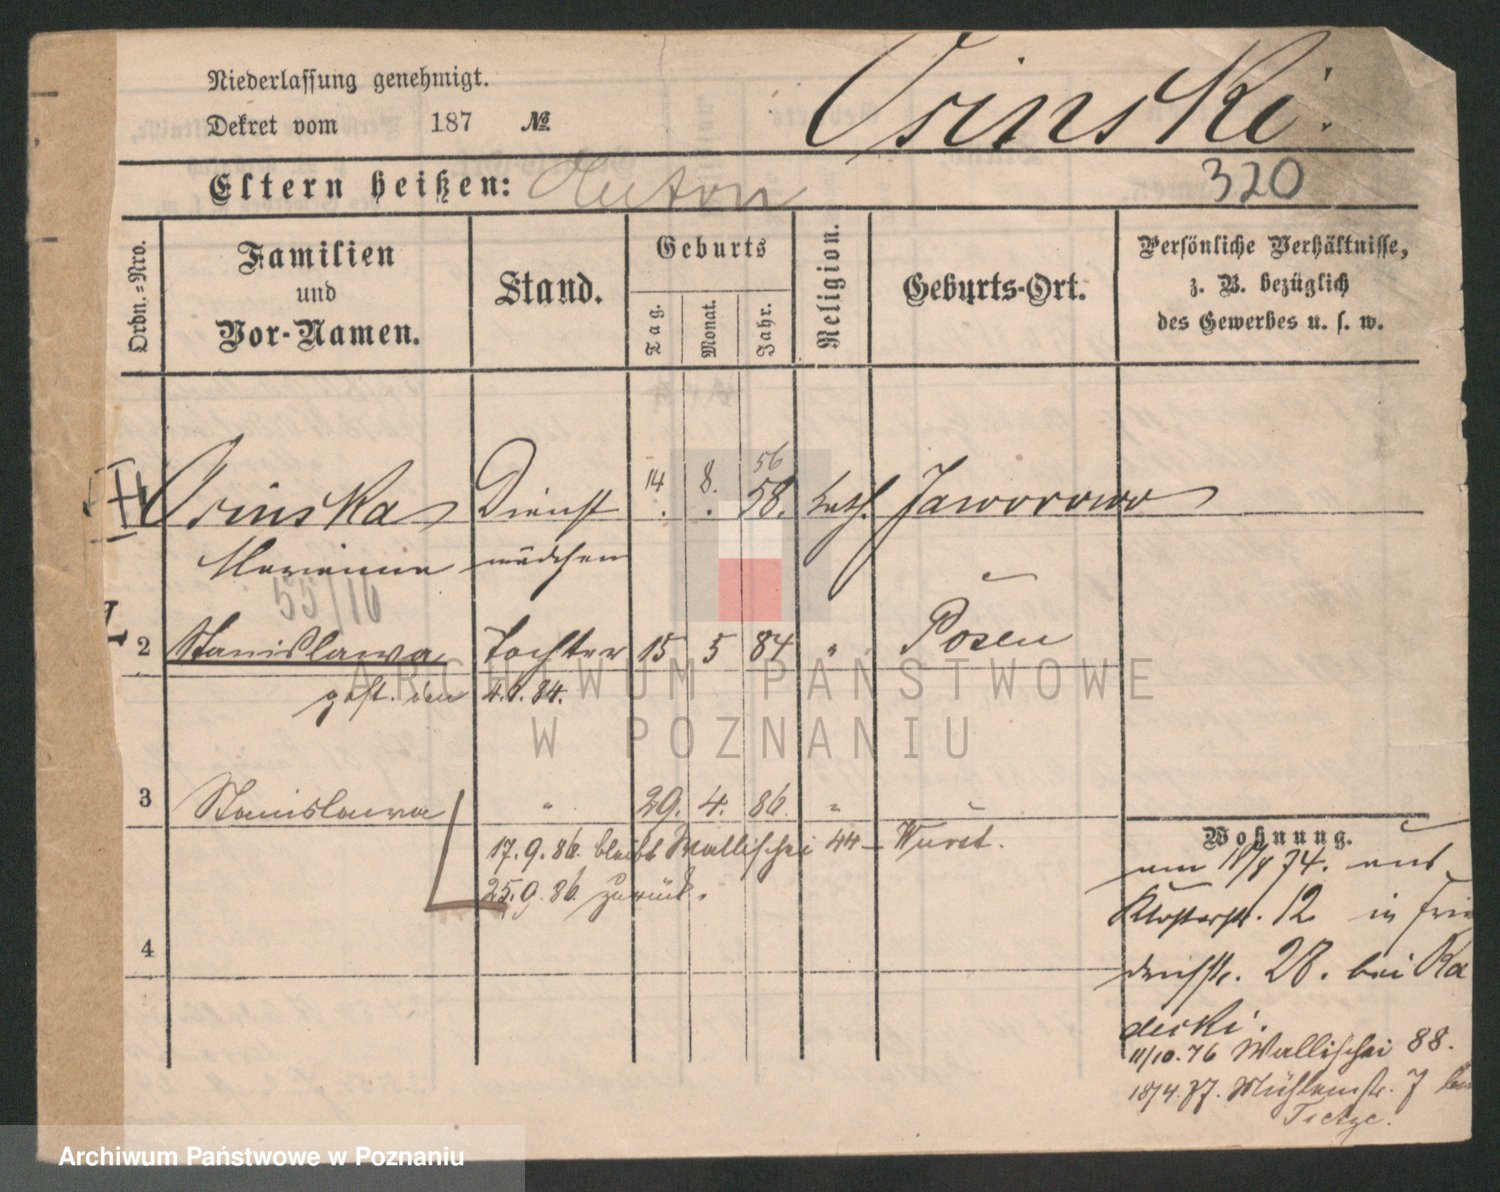 Niederlassung genehmigt.
Dekret vom 187 №
Osinski.
Eltern heißen: Anton
320
Ordn.=Nro.
Familien
und
Vor-Namen.
Stand.
Geburts
Tag.
Monat.
Jahr.
Religion.
Geburts-Ort.
Persönliche Verhältnisse,
z. B. bezüglich
des Gewerbes u. s. w.
Osinska Dienst 14. 8. 56 58. kath. Jaworowo
Marianna mädchen
55/16
2 Stanislawa Tochter 15 5 84 " Posen
gest. den 4. 84.
3 Stanislawa " 29. 4. 86. "
17.9.86. bleibt Wallischei 44 –
25.9.86 zurück.
4
Wohnung.
am 74. aus
Klosterstr. 12 in Frie
drichstr. 28. bei Ra
deski.
11/10.76 Wallischei 88.
18/4.77. Mühlenstr. 7 bei
Tietze.
ARCHIWUM PAŃSTWOWE
W POZNANIU
Archiwum Państwowe w Poznaniu